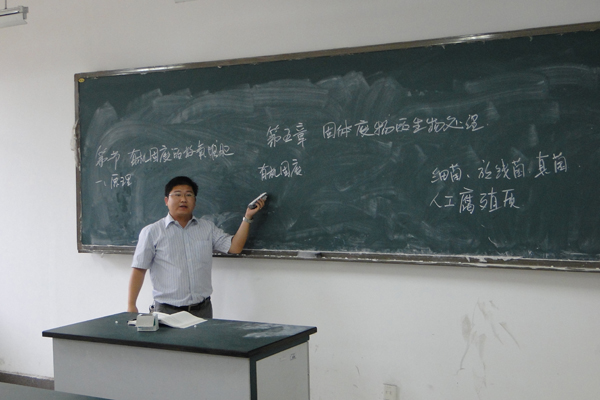 第五章 固体废物的生物处理
第一节 有机固废的好氧堆肥
一、原理
有机固废
细菌、放线菌、真菌
人工腐殖质